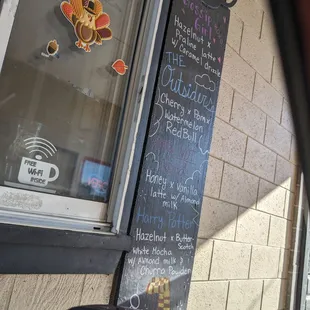 Hazelnut x
Praline latte
w/ Caramel drizzle
THE
Outsiders
Cherry x Pom x
Watermelon
Red Bull
Honey x Vanilla
latte w/ Almond
milk
Harry Potter
Hazelnut x Butter-
Scotch
White Mocha
w/ Almond milk &
Churro Powder
FREE
Wi-Fi
INSIDE